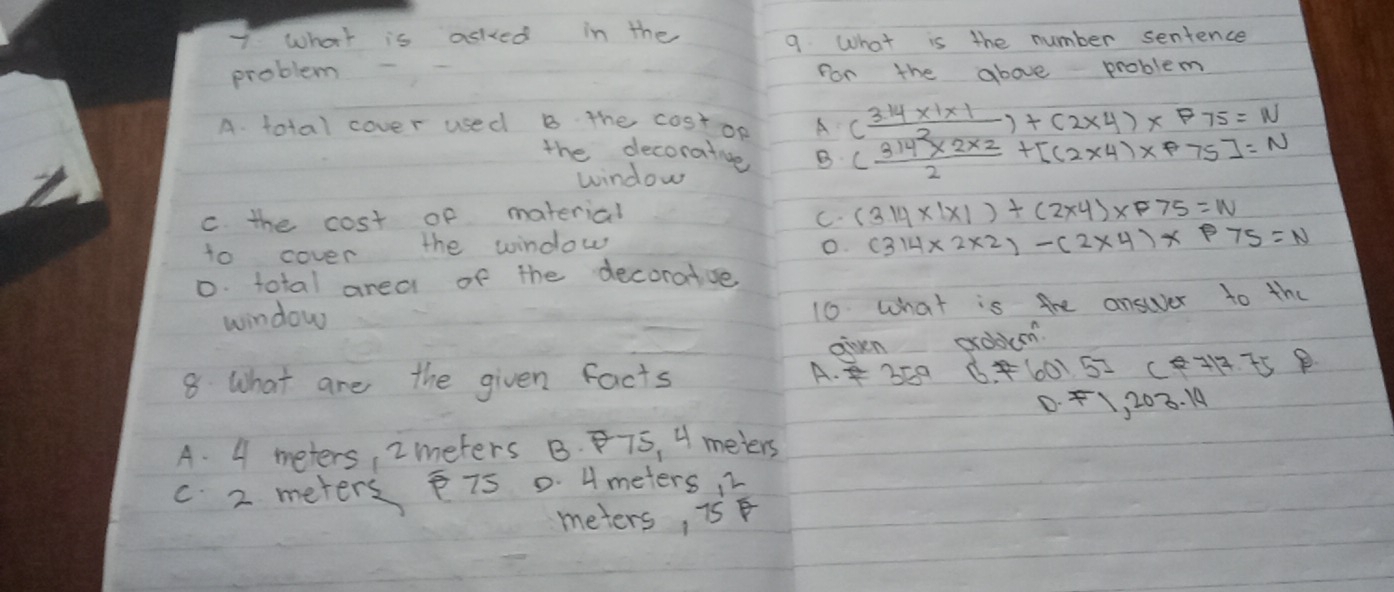 7. What is asked in the
problem - -
A. total cover used B. the cost of
the decorative
window
C. the cost of material
to cover the window
D. total area of the decorative
window
8. What are the given facts
A. 4 meters, 2 meters B. ₱75, 4 meters
C. 2 meters, ₱75 D. 4 meters, 2
meters, 75 ₱
9. What is the number sentence
for the above problem
A. (3.14 x 1 x 1 / 2) + (2x4) x ₱75 = N
B. (3.14 x 2 x 2 / 2 + [(2x4) x ₱75] = N
C. (3.14 x 1 x 1) + (2x4) x ₱75 = N
D. (3.14 x 2 x 2) - (2x4) x ₱75 = N
10. What is the answer to the
given problem?
A. ₱ 359 B. ₱ 601.57 C ₱ 717.75 ₱
D. ₱1,203.14